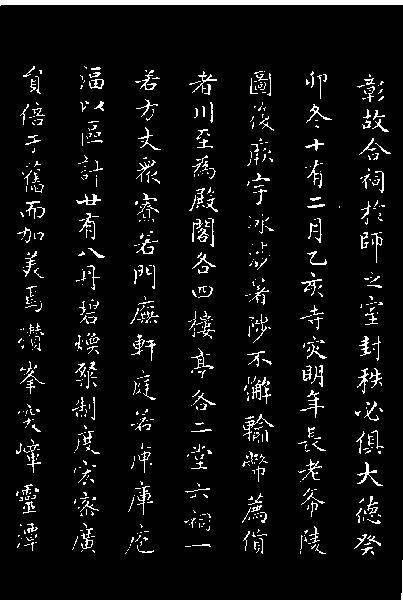 彰故合祠於師之室封秩必俱大德癸
卯冬十有二月乙亥寺灾明年長老爷陵
圖復厥宇冰涉暑陟不懈輸幣薦貨
者川至為殿閣各四樓亭各二堂六祠一
若方丈眾寮若門廡軒庭若庫庾庖
湢以區計廿有八丹碧煥發制度宏密廣
貟倍于舊而加美焉攢峯突嶂靈潭